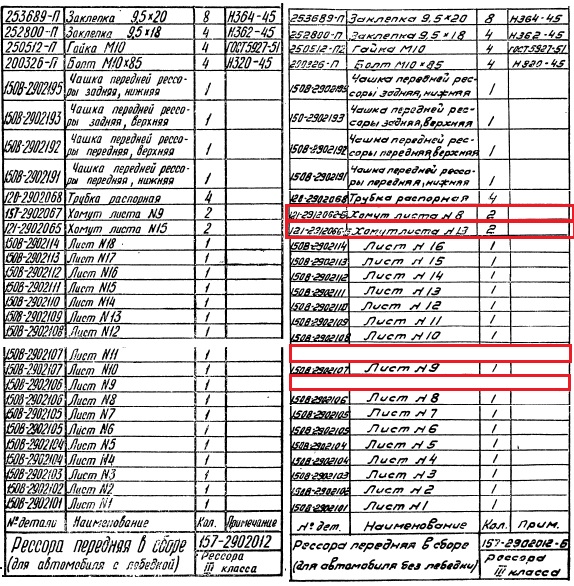 253689-П Заклепка 9,5×20 8 Н364-45
252800-П Заклепка 9,5×18 4 Н362-45
250512-П Гайка М10 4 ГОСТ5927-51
200326-П Болт М10×85 4 Н320-45
150В-2902195 Чашка передней рессоры задняя, нижняя 1
150В-2902193 Чашка передней рессоры задняя, верхняя 1
150В-2902192 Чашка передней рессоры передняя, верхняя 1
150В-2902191 Чашка передней рессоры передняя, нижняя 1
120-2902068 Трубка распорная 4
157-2902067 Хомут листа N9 2
121-2902065 Хомут листа N15 2
150В-2902114 Лист N18 1
150В-2902113 Лист N17 1
150В-2902112 Лист N16 1
150В-2902111 Лист N15 1
150В-2902110 Лист N14 1
150В-2902109 Лист N13 1
150В-2902108 Лист N12 1
150В-2902107 Лист N11 1
150В-2902107 Лист N10 1
150В-2902106 Лист N9 1
150В-2902106 Лист N8 1
150В-2902105 Лист N7 1
150В-2902105 Лист N6 1
150В-2902104 Лист N5 1
150В-2902104 Лист N4 1
150В-2902103 Лист N3 1
150В-2902102 Лист N2 1
150В-2902101 Лист N1 1
№ детали Наименование Кол. Примечание
Рессора передняя в сборе 157-2902012
(для автомобиля с лебедкой) Рессора III класса
253689-П Заклепка 9,5×20 8 Н364-45
252800-П Заклепка 9,5×18 4 Н362-45
250512-П2 Гайка М10 4 ГОСТ5927-51
200326-П Болт М10×85 4 Н320-45
150В-2902195 Чашка передней рессоры задняя, нижняя 1
150-2902193 Чашка передней рессоры задняя, верхняя 1
150В-2902192 Чашка передней рессоры передняя, верхняя 1
150В-2902191 Чашка передней рессоры передняя, нижняя 1
120-2902068 Трубка распорная 4
121-2912062-Б Хомут листа N8 2
Хомут листа N13 2
150В-2902114 Лист N16 1
150В-2902113 Лист N15 1
150В-2902112 Лист N14 1
150В-2902111 Лист N13 1
150В-2902110 Лист N12 1
150В-2902109 Лист N11 1
150В-2902108 Лист N10 1
150В-2902107 Лист N9 1
150В-2902106 Лист N8 1
150В-2902105 Лист N7 1
150В-2902105 Лист N6 1
150В-2902104 Лист N5 1
150В-2902104 Лист N4 1
150В-2902103 Лист N3 1
150В-2902102 Лист N2 1
150В-2902101 Лист N1 1
№ дет. Наименование Кол. Прим.
Рессора передняя в сборе 157-2902012-Б
(для автомобиля без лебедки) Рессора III класса